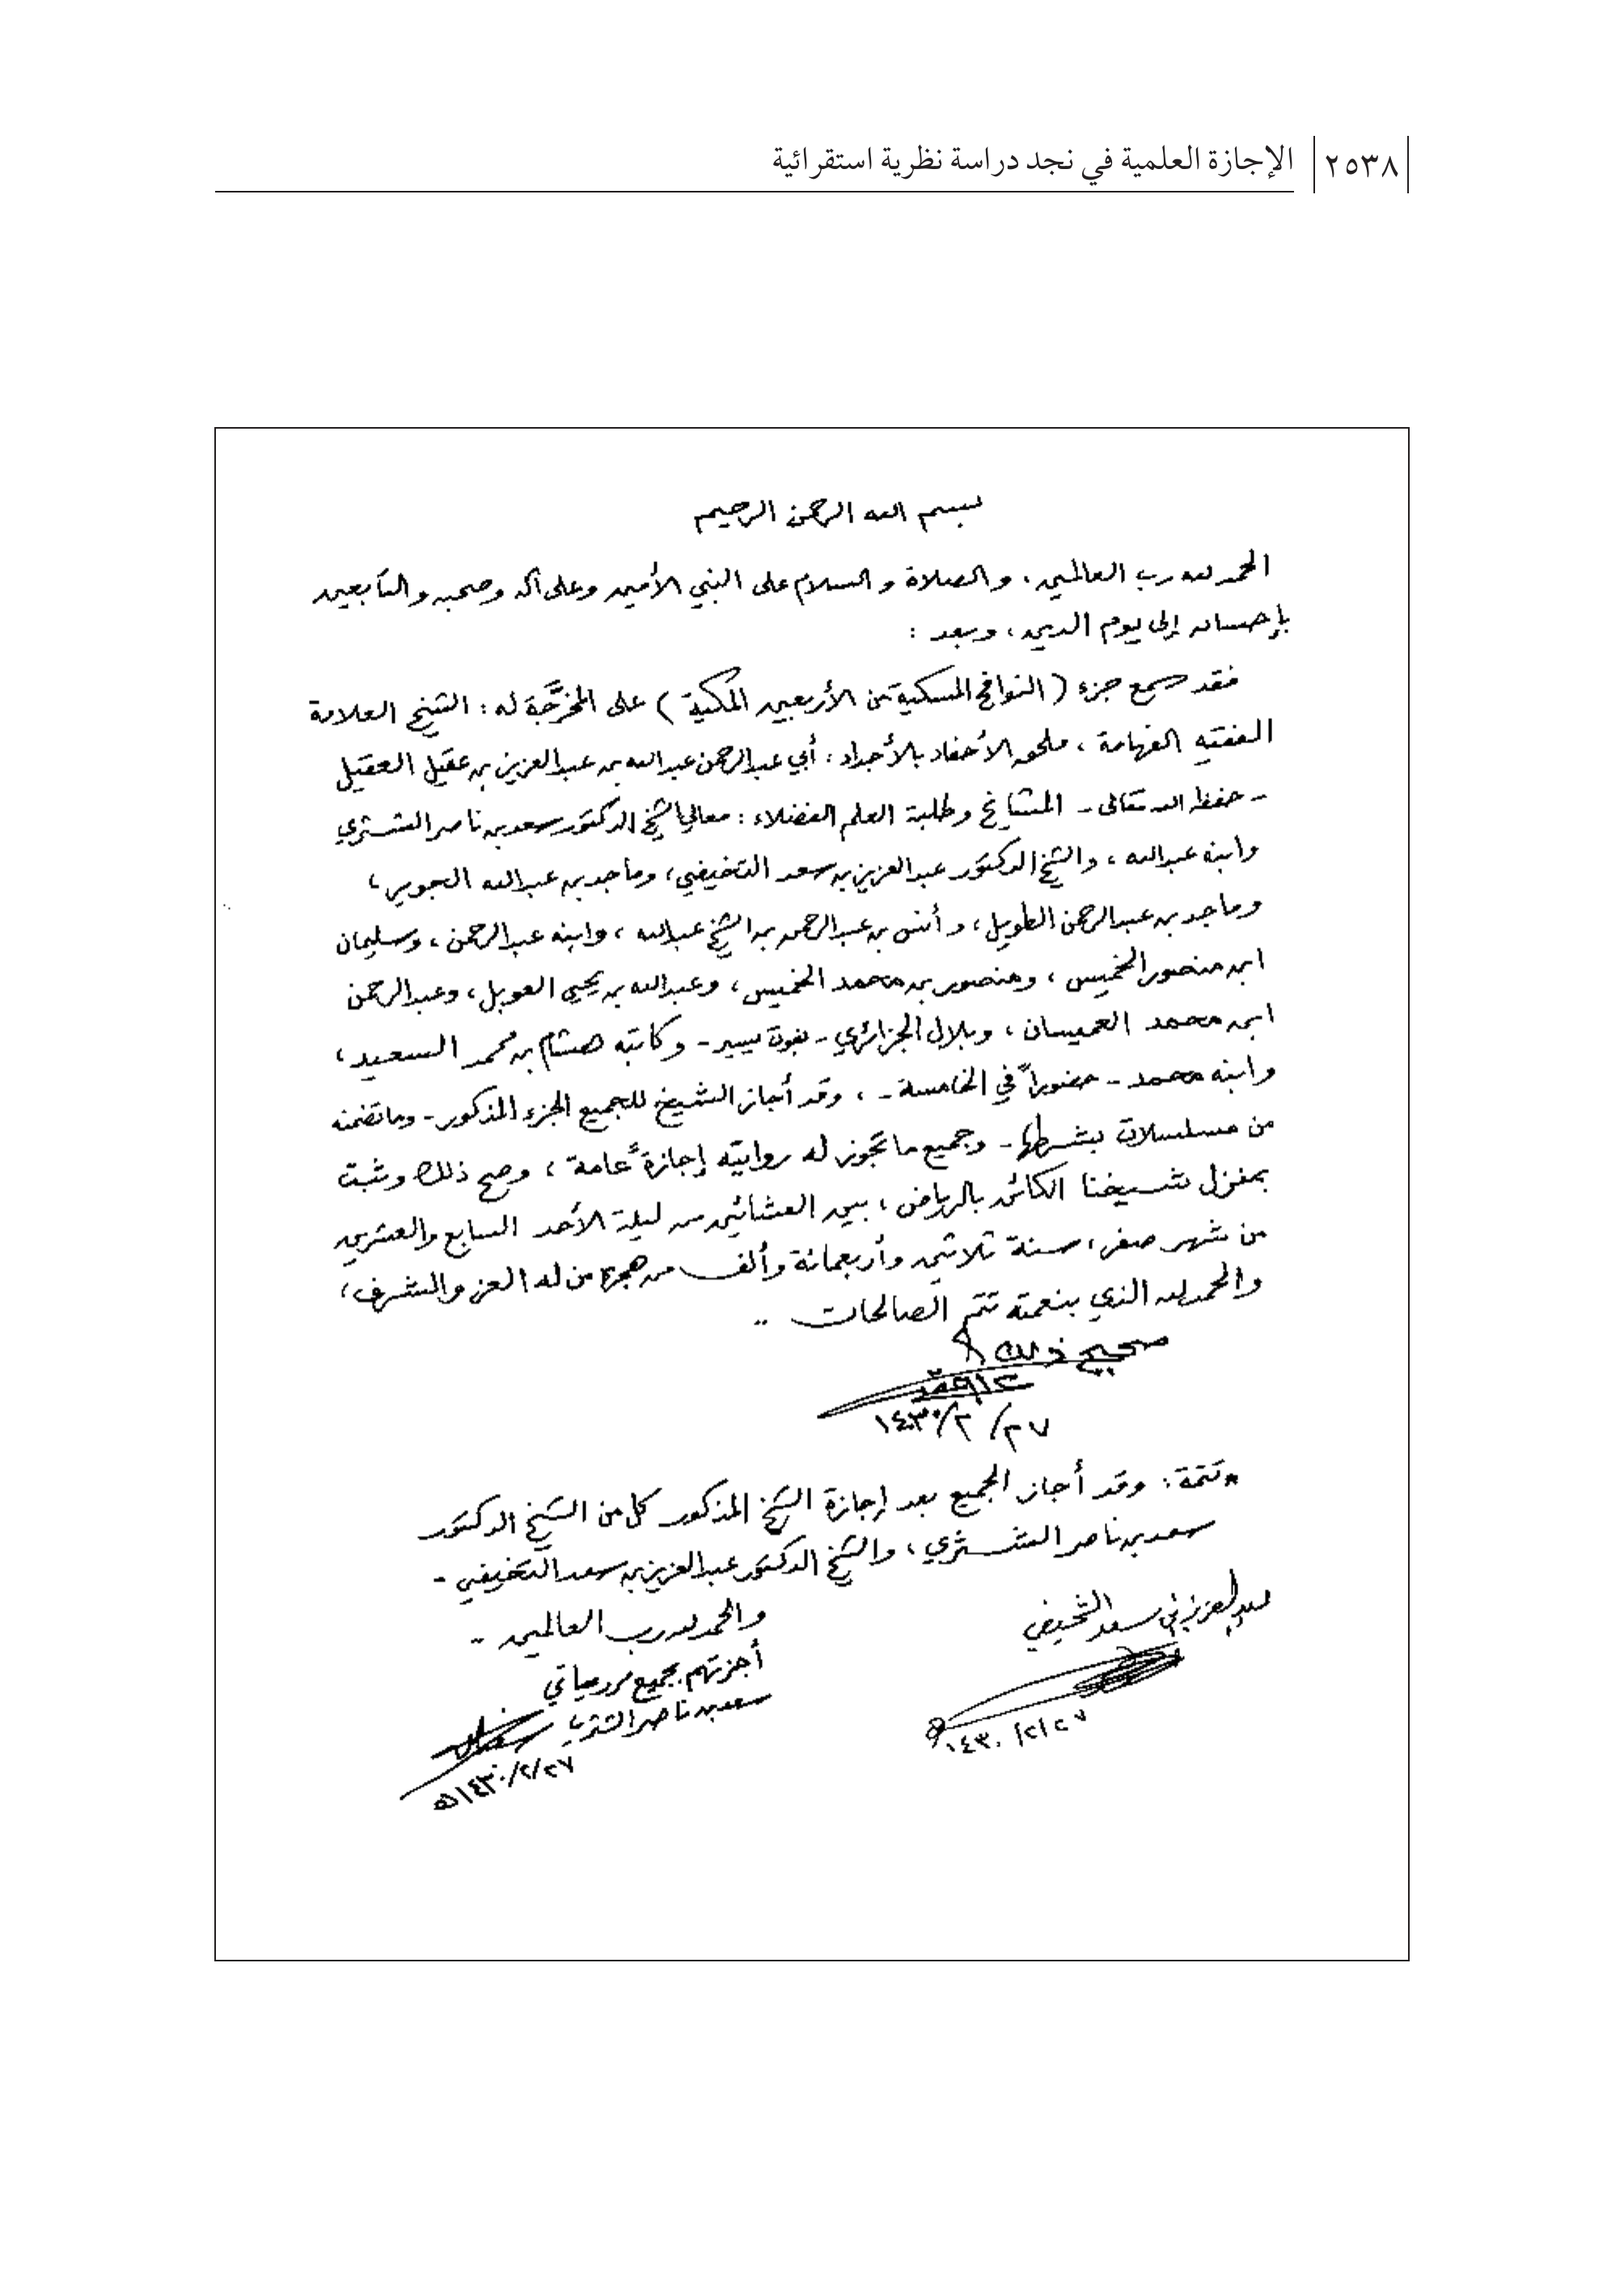 ٢٥٣٨ الإجازة العلمية في نجد دراسة نظرية استقرائية
بسم الله الرحمن الرحيم
الحمد لله رب العالمين، والصلاة والسلام على النبي الأمين وعلى آله وصحبه والتابعين
بإحسان إلى يوم الدين، وبعد:
فقد سمع جزء (النوافح المسكية من الأربعين المكية) على المخرَّجة له: الشيخ العلامة
الفقيه الفهامة، ملحق الأحفاد بالأجداد، أبي عبدالرحمن عبدالله بن عبدالعزيز بن عقيل العقيل
- حفظه الله تعالى - المشايخ وطلبة العلم الفضلاء: معالي الشيخ الدكتور سعد بن ناصر الشثري
وابنه عبدالله، والشيخ الدكتور عبدالعزيز بن سعد التخيفي، وماجد بن عبدالله الجوير،
وماجد بن عبدالرحمن الطويل، وأنس بن عبدالرحمن بن الشيخ عبدالله، وابنه عبدالرحمن، وسليمان
ابن منصور الخميس، ومنصور بن محمد الخميس، وعبدالله بن يحيى العوبل، وعبدالرحمن
ابن محمد العميسان، وبلال الجزائري - بفوت يسير - وكاتبه هشام بن محمد السعيد،
وابنه محمد - حضوراً في الخامسة -، وقد أجاز الشيخ للجميع الجزء المذكور - وما تضمنه
من مسلسلات بشرطها - وجميع ما تجوز له روايته إجازةً عامة، وصح ذلك وثبت
بمنزل شيخنا الكائن بالرياض، بين العشائين من ليلة الأحد السابع والعشرين
من شهر صفر، سنة ثلاثين وأربعمائة وألف من هجرة من له العز والشرف،
والحمد لله الذي بنعمته تتم الصالحات ..
صحيح ذلك
٢٧/٢/١٤٣٠
* تتمة: وقد أجاز الجميع بعد إجازة الشيخ المذكور كل من الشيخ الدكتور
سعد بن ناصر الشثري، والشيخ الدكتور عبدالعزيز بن سعد التخيفي -
والحمد لله رب العالمين ..
عبدالعزيز بن سعد التخيفي
٢٧/٢/١٤٣٠
أجزتهم بجميع مروياتي
سعد بن ناصر الشثري
٢٧/٢/١٤٣٠هـ